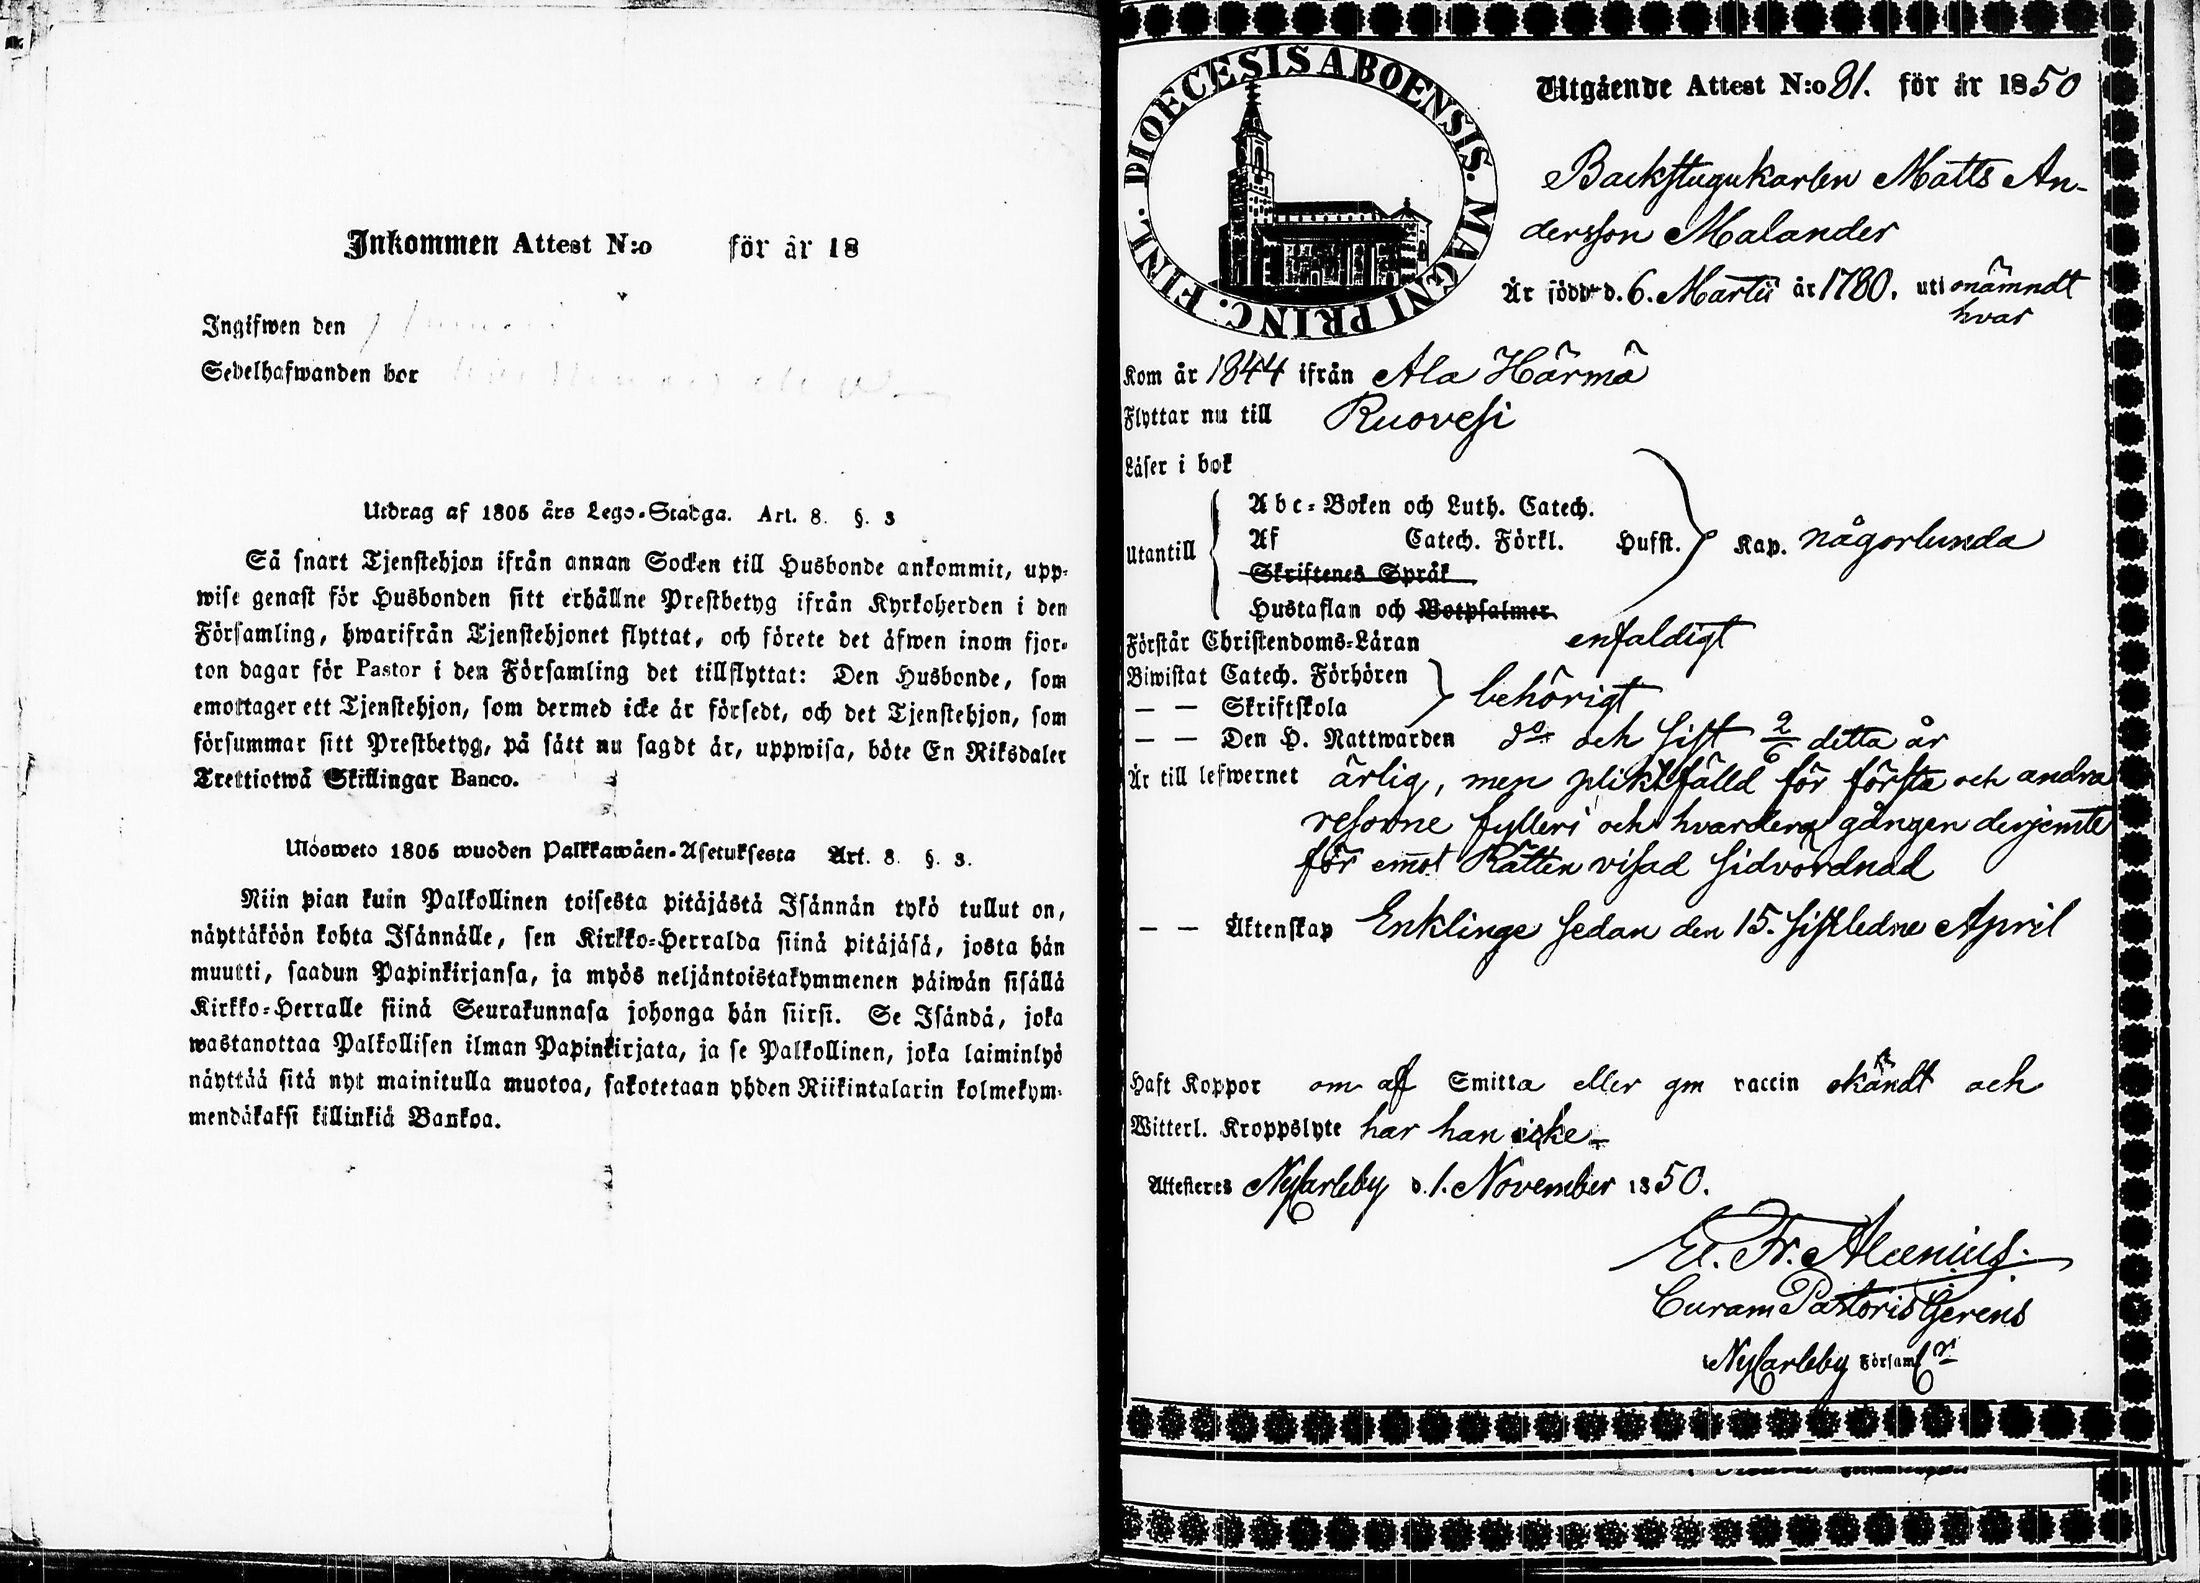 Inkommen Attest N:o för år 18
Ingifwen den
Sedelhafwanden bor
Utdrag af 1805 års Lego-Stadga. Art. 8. §. 3
Så snart Tjenstehjon ifrån annan Socken till Husbonde ankommit, upp-
wise genast för Husbonden sitt erhållne Prestbetyg ifrån Kyrkoherden i den
Församling, hwarifrån Tjenstehjonet flyttat, och förete det äfwen inom fjor-
ton dagar för Pastor i den Församling det tillflyttat: Den Husbonde, som
emottager ett Tjenstehjon, som dermed icke är försedt, och det Tjenstehjon, som
försummar sitt Prestbetyg, på sätt nu sagdt är, uppwisa, böte En Riksdaler
Trettiotwå Skillingar Banco.
Ulosweto 1805 wuoden Palkkawäen-Asetuksesta Art. 8. §. 3.
Niin pian kuin Palkollinen toisesta pitäjästä Isännän tykö tullut on,
näyttäköön kohta Isännälle, sen Kirkko-Herralda siinä pitäjäsä, josta hän
muutti, saadun Papinkirjansa, ja myös neljäntoistakymmenen päiwän sisällä
Kirkko-Herralle siinä Seurakunnasa johonga hän siirsi. Se Isändä, joka
wastanottaa Palkollisen ilman Papinkirjata, ja se Palkollinen, joka laiminlyö
näyttää sitä nyt mainitulla muotoa, sakotetaan yhden Riikintalarin kolmekym-
mendäkaksi killinkiä Bankoa.
DIOECESIS ABOENSIS. MAGNI PRINC. FINL.
Utgående Attest N:o 81. för år 1850
Backstugukarlen Matts An-
dersson Malander
Är född d. 6. Martii år 1780. uti onämndt
hvar
Kom år 1844 ifrån Ala Härmä
Flyttar nu till Ruovesi
Läser i bok
Utantill
Abc-Boken och Luth. Catech.
Af Catech. Förkl. Hufst. Kap. någorlunda
Skriftenes Språk
Hustaflan och Botpsalmer
Förstår Christendoms-Läran enfaldigt
Biwistat Catech. Förhören
— — Skriftskola behörigt
— — Den H. Nattwarden do och sist 2/6 detta år
Är till lefwernet ärlig, men pliktfälld för första och andra
resorne fylleri och hvardera gången derjemte
för emot Rätten visad sidvördnad
— — Äktenskap Enklinge sedan den 15. sistledne April
Haft Koppor om af Smitta eller gm vaccin okändt och
Witterl. Kroppslyte har han icke
Attesteres NyCarleby d. 1. November 1850.
Curam Pastoris Gerens
NyCarleby Församl r